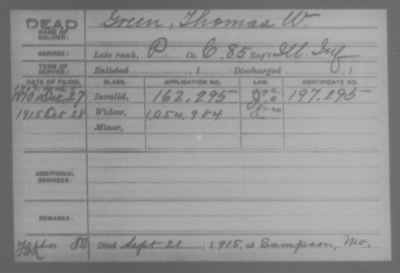 DEAD
NAME OF SOLDIER: Green, Thomas W.
SERVICE: Late rank, P Co. C, 85 Reg't Ill. Inf
TERM OF SERVICE: Enlisted , 1 Discharged , 1
DATE OF FILING. CLASS. APPLICATION NO. LAW. CERTIFICATE NO.
1870 Dec. 27 Invalid, 162,295 197.295
1915 Oct 28 Widow, 1,054,984
Minor,
ADDITIONAL SERVICES:
REMARKS:
Died Sept 21, 1915, at Sampson, Mo.